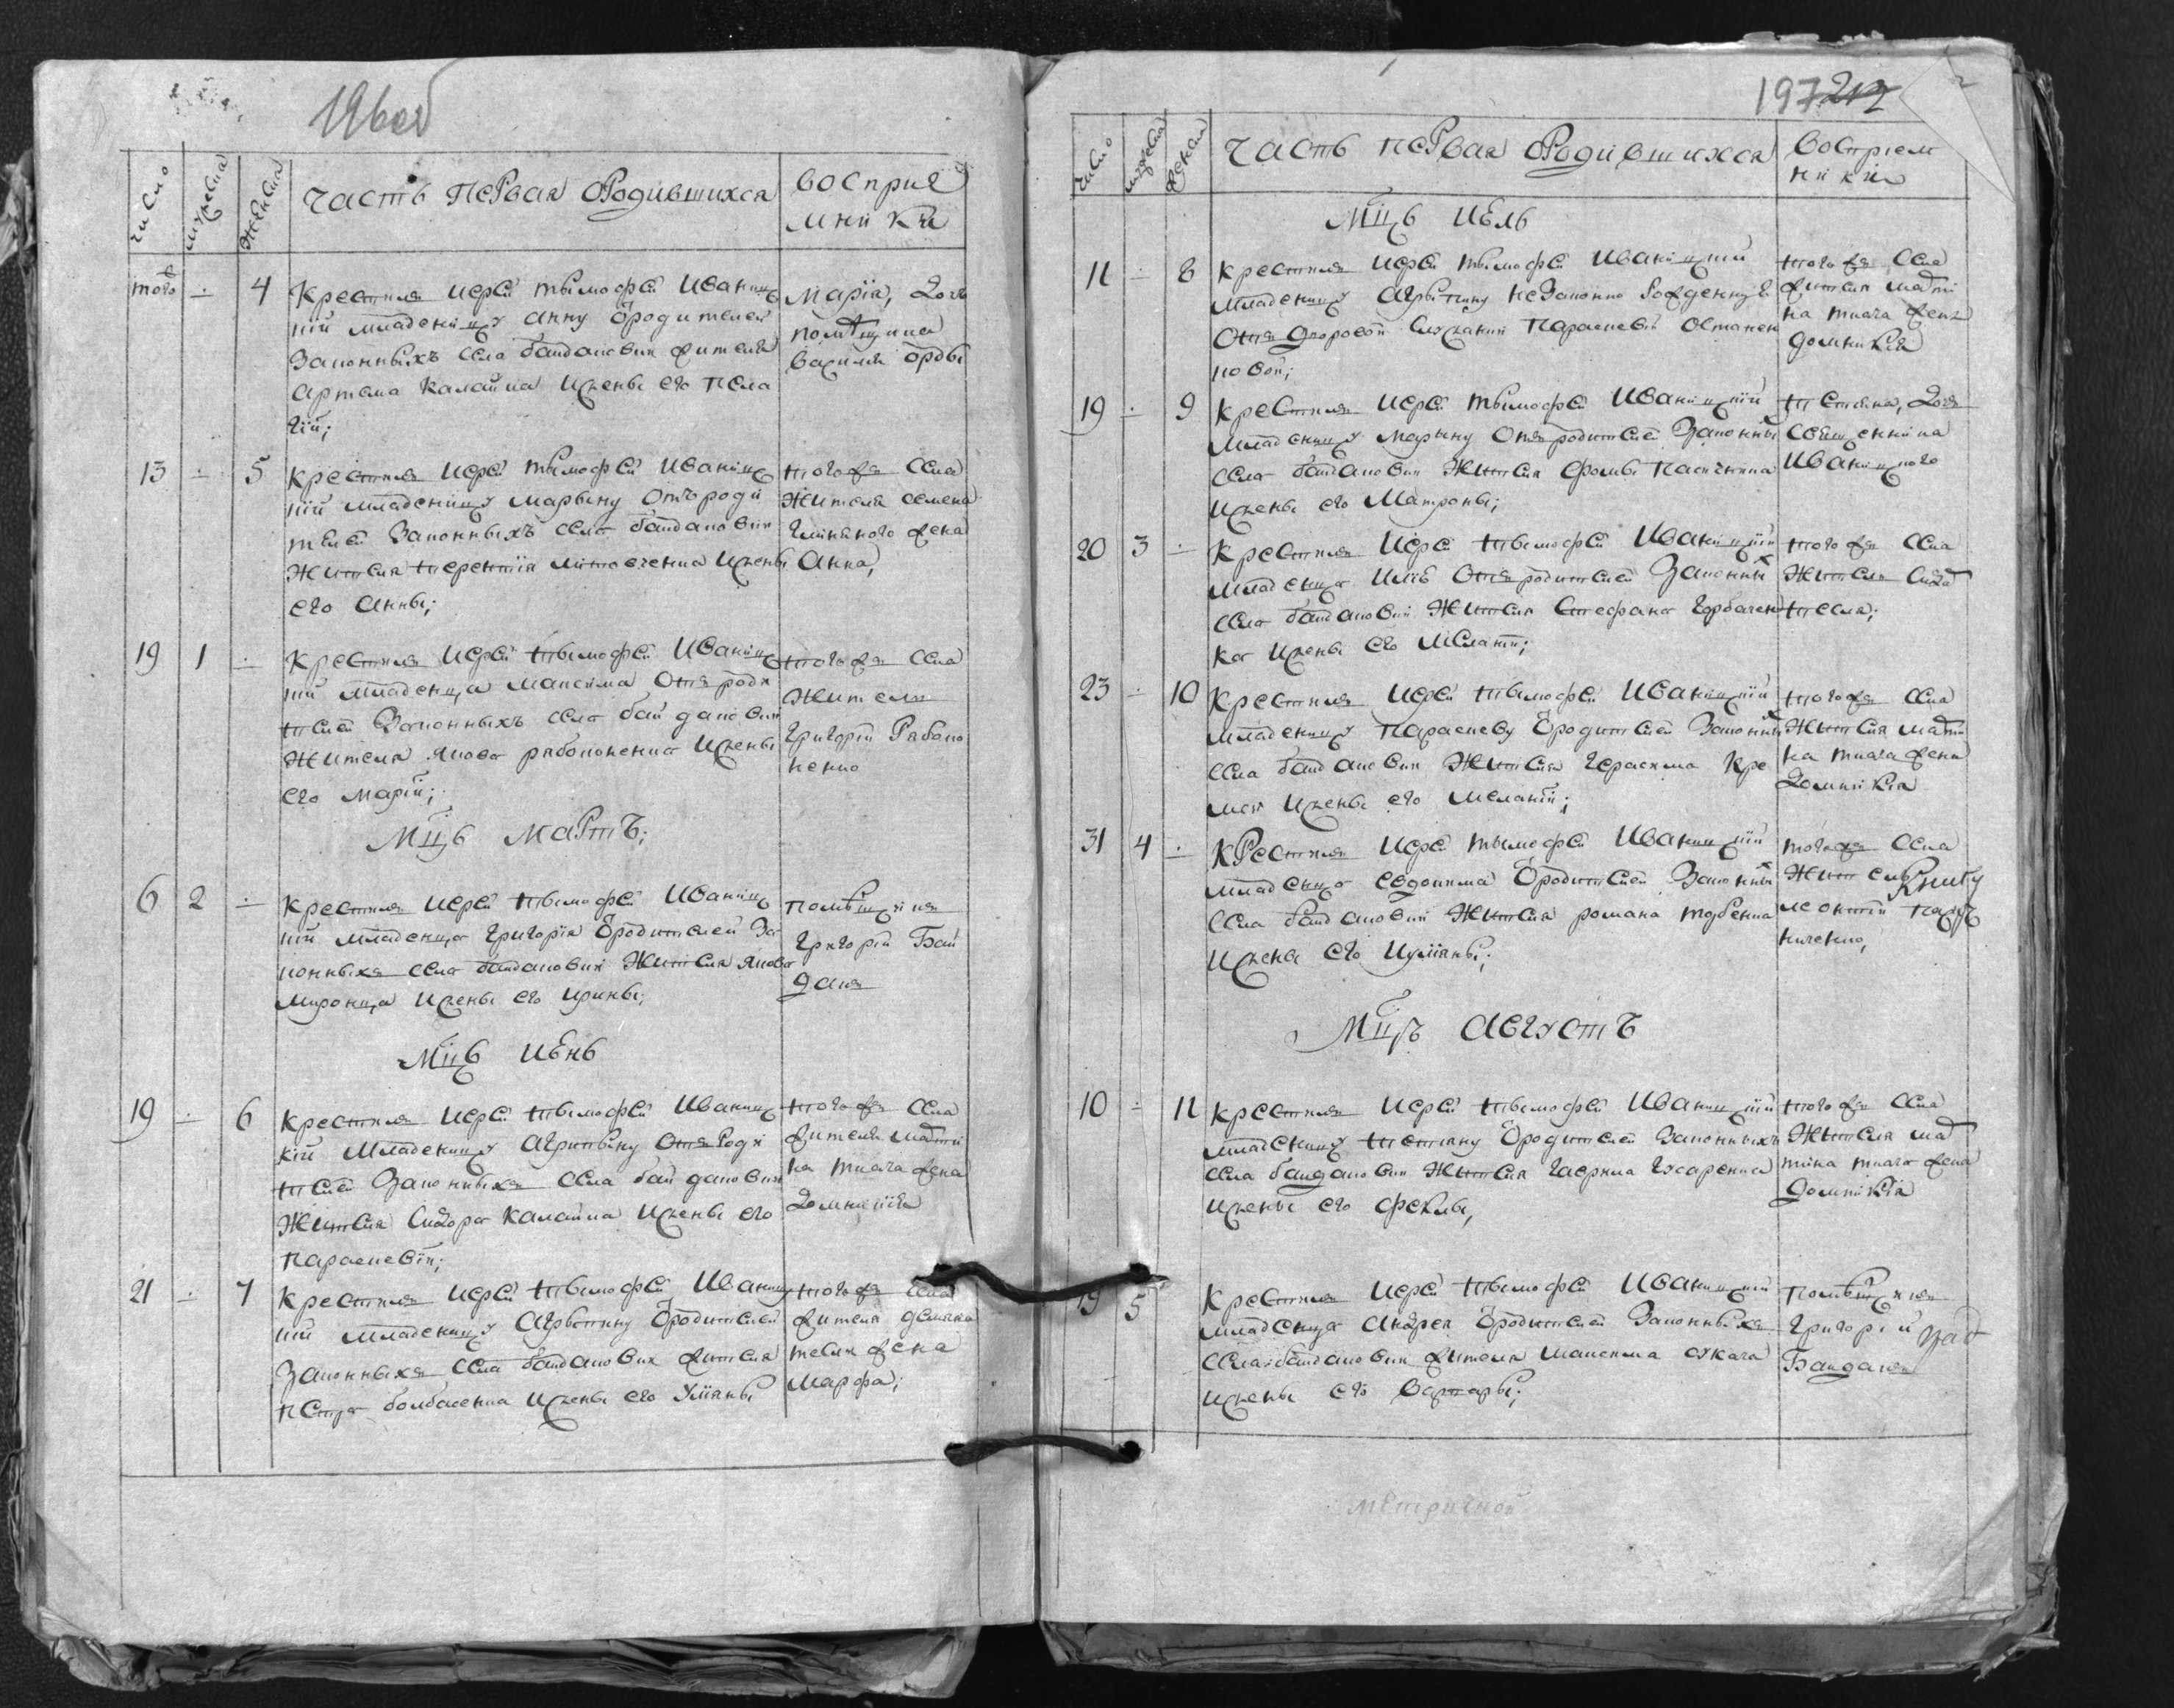 число
мужеска
женска
часть первая о родившихся
восприе
мники
того
4
крестилъ иерей тымофей иваниц
кий младеницу анну от родителей
законныхъ села байдаковки жителя
артема калайда и жены его пела
гии;
мария, дочь
помещика
василия орды
13
5
крестилъ иерей тымофей иваниц
кий младеницу марыну отъ роди
телей законныхъ села байдаковки
жителя терентия и жены
его анны;
того же села
жителя семена
жена
анна,
19
1
крестилъ иерей тымофей иваниц
кий младенца максима отъ роди
телей законныхъ села байдаковки
жителя якова рабоконенка и жены
его марии;
того же села
жителъ
григорий рабоко
ненко
мцъ мартъ;
6
2
крестилъ иерей тымофей иваниц
кий младенца григория от родителей за
конныхъ села байдаковки жителя якова
миронца и жены его ирины;
помещикъ
григорий бай
дакъ
мцъ июнь
19
6
крестилъ иерей тымофей иваниц
кий младеницу агрипину отъ роди
телей законныхъ села байдаковки
жителя сидора калайда и жены его
параскевии;
того же села
жителя марти
на ткача жена
домникия
21
7
крестилъ иерей тымофей иваниц
кий младеницу агрыпину от родителей
законныхъ села байдаковки жителя
петра болбасенка и жены его улияны
того же села
жителя демяна
жена
марфа;
197
212
число
мужеска
женска
часть первая о родившихся
восприем
ники
мцъ июль
11
8
крестилъ иерей тымофей иваницкий
младеницу агрыпину незаконно рожденную
отъ дворовой служанки параскевы останен
ковой;
того же села
жителя марти
на ткача жена
домникия
19
9
крестилъ иерей тымофей иваницкий
младеницу марыну отъ родителей законных
села байдаковки жителя фомы пасичника
и жены его матроны;
тетяна, дочь
священника
иваницкого
20
3
крестилъ иерей тымофей иваницкий
младенца илию отъ родителей законных
села байдаковки жителя стефана горбачен
ка и жены его мелании;
того же села
жителъ
23
10
крестилъ иерей тымофей иваницкий
младеницу параскеву от родителей законных
села байдаковки жителя герасима
и жены его мелании;
того же села
жителя марти
на ткача жена
домникия
31
4
крестилъ иерей тымофей иваницкий
младенца евдокима от родителей законных
села байдаковки жителя романа
и жены его иулияны;
того же села
жителъ
леонтий
мцъ августъ
10
11
крестилъ иерей тымофей иваницкий
младеницу тетяну от родителей законныхъ
села байдаковки жителя гаврила гусаренка
и жены его феклы,
того же села
жителя мар
тина ткача жена
домникия
19
5
крестилъ иерей тымофей иваницкий
младенца андрея от родителей законныхъ
села байдаковки жителя максима сукача
и жены его варвары;
помещикъ
григорий
байдакъ
метричной